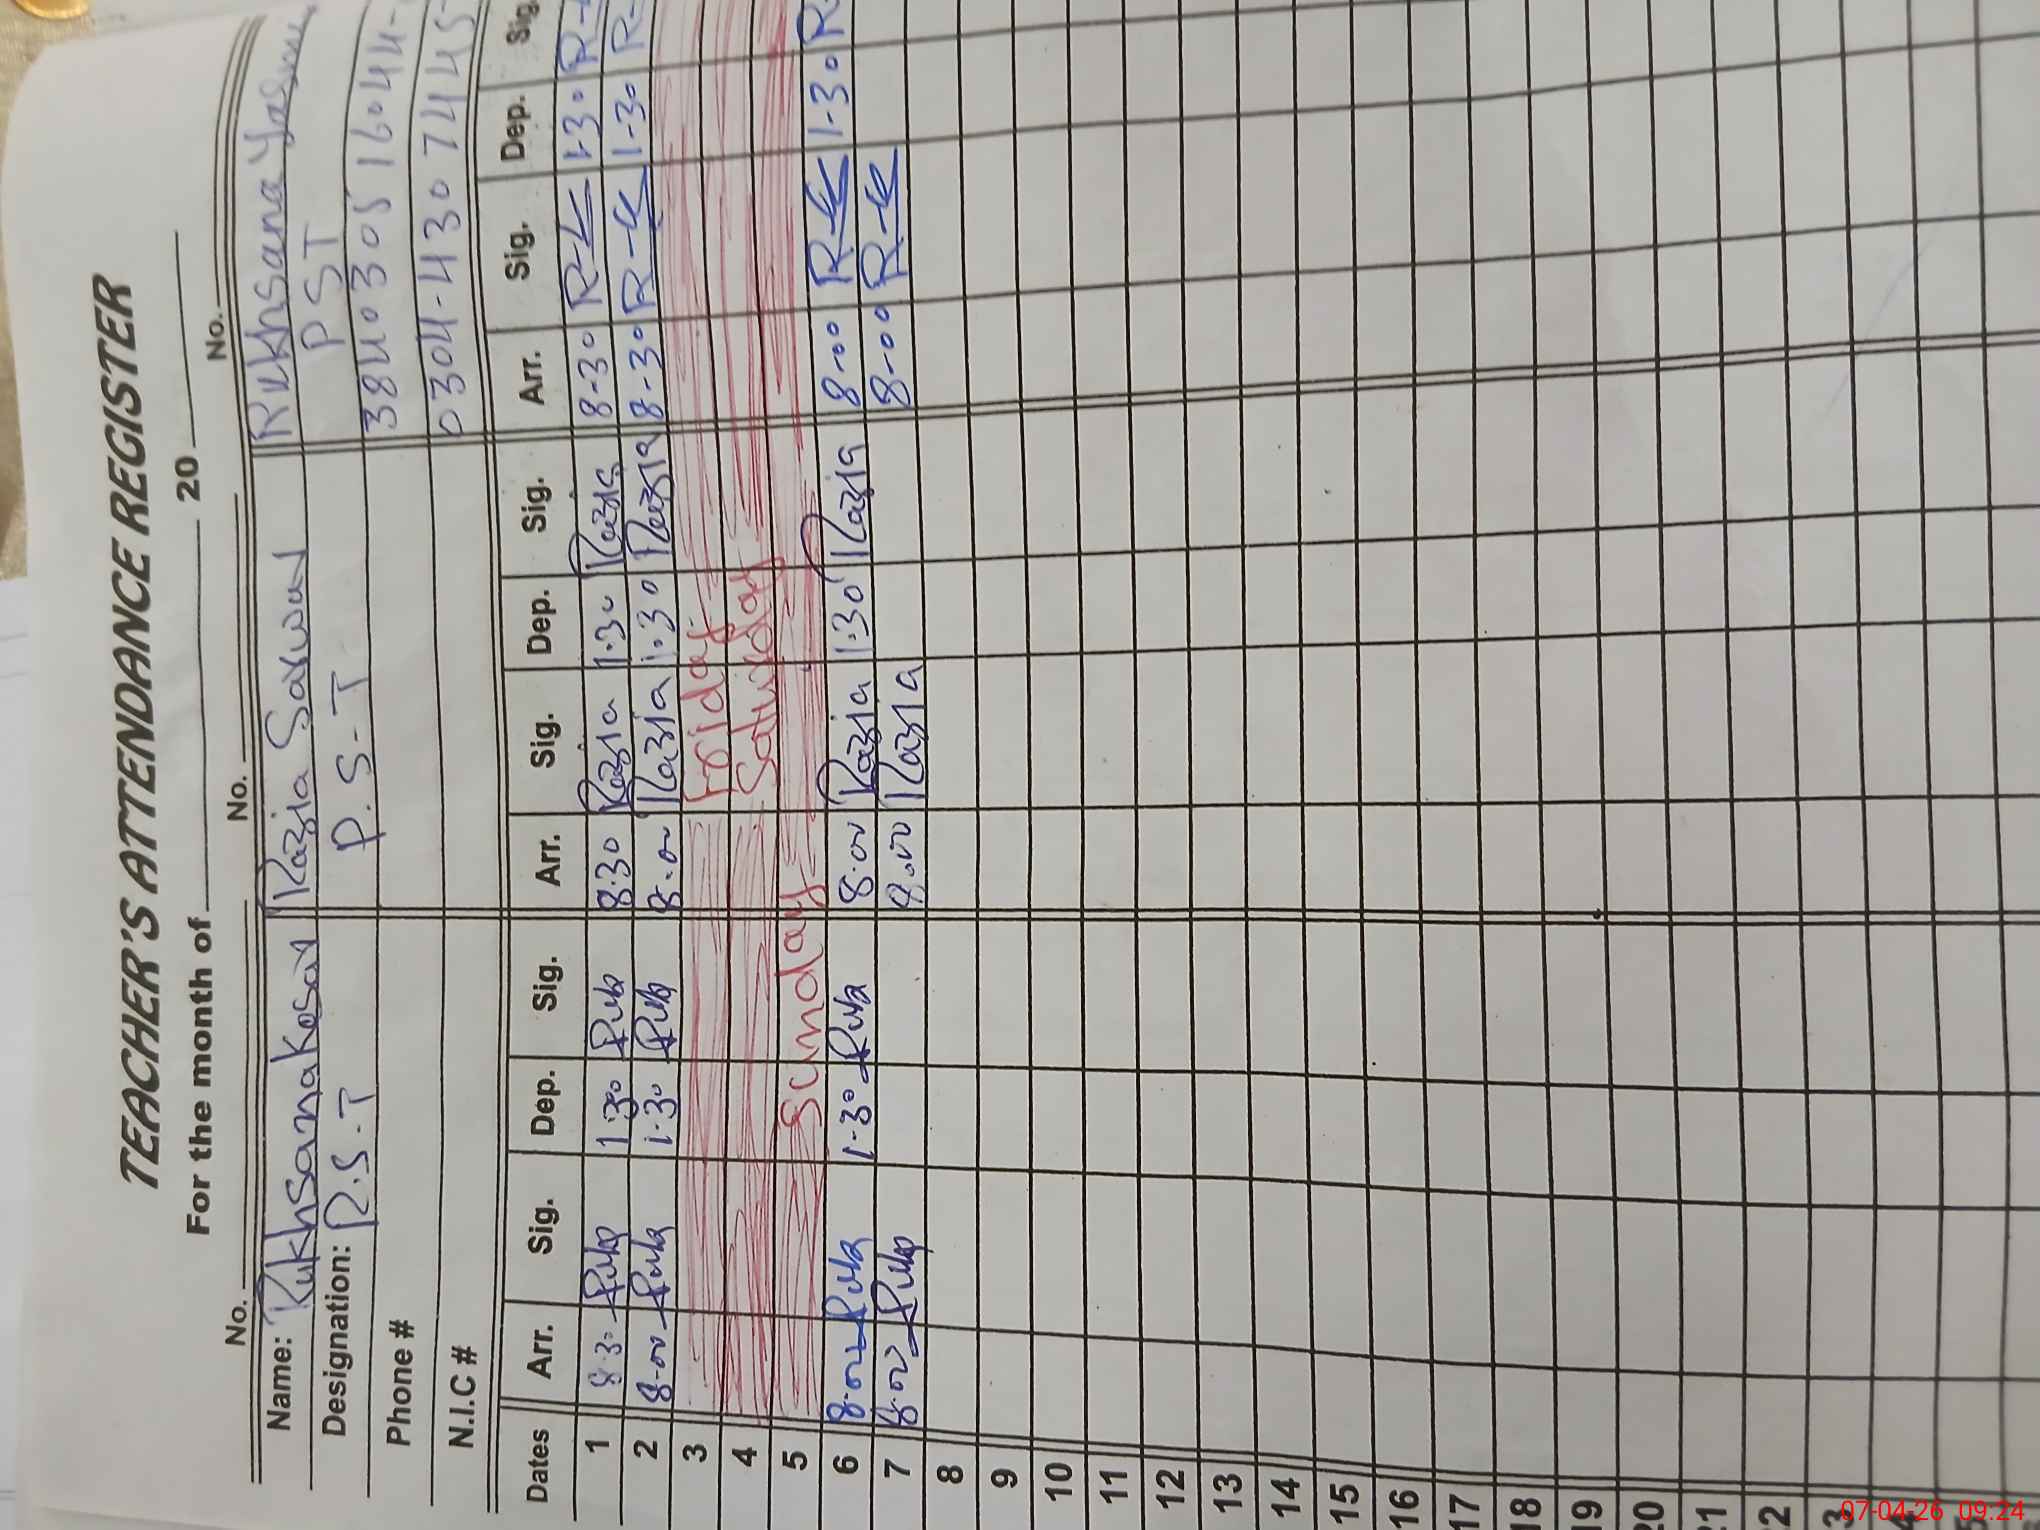 TEACHER'S ATTENDANCE REGISTER
For the month of 20
No. No. No.
Name: Rukhsana Kosar Razia Sarwar Rukhsana Yasmin
Designation: P.S.T P.S-T PST
Phone # 38403051604
N.I.C # 0304-4307445
Dates Arr. Sig. Dep. Sig. Arr. Sig. Dep. Sig. Arr. Sig. Dep. Sig.
1 8-30 1-30 8.30 Razia 1.30 Razia 8-30 R-K 1-30 R-
2 8-00 1-30 8.00 Razia 1.30 Razia 8-30 R-K 1-30 R-
3 Friday
4 Saturday
5 Sunday
6 8-00 1-30 8.00 Razia 1.30 Razia 8-00 R-K 1-30 R
7 8-00 8.00 Razia 8-00 R-K
8
9
10
11
12
13
14
15
16
17
18
19
20
21
2
3
07-04-26 09:24